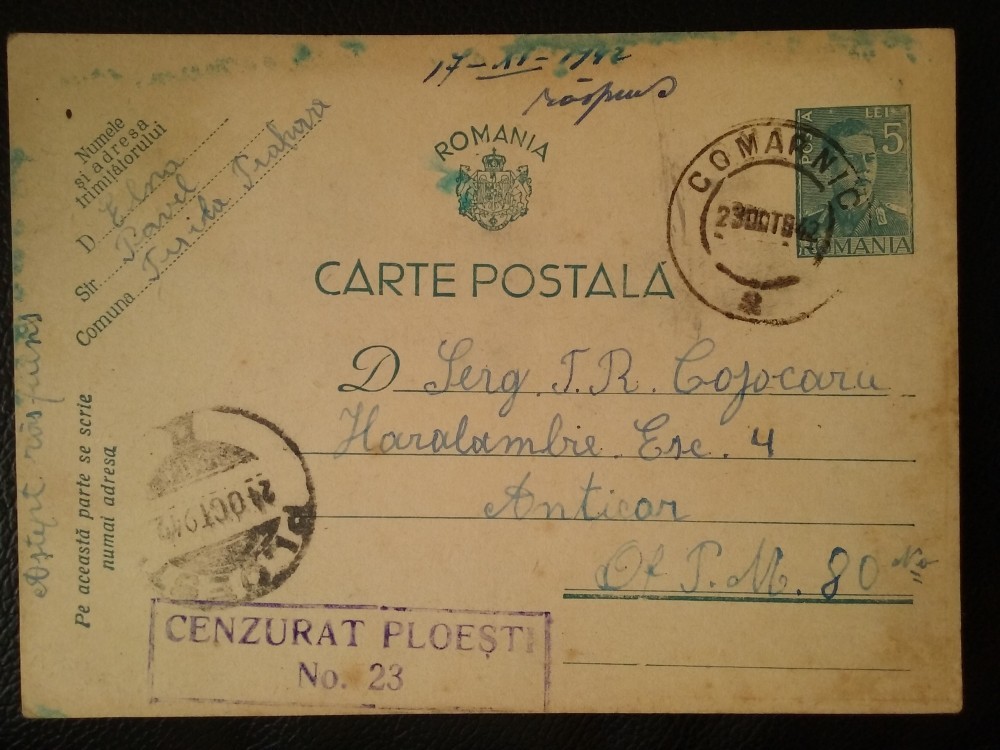 17-XI-1942
răspuns
Numele
și adresa
trimițătorului
D Elna
Str. Pavel
Comuna
ROMANIA
CARTE POSTALĂ
POSTA LEI 5
ROMANIA
COMARNIC
23 OCT 942
D Serg. T.R. Cojocaru
Haralambie Esc. 4
Anticar
Of P.M. 80 No
Aștept răspuns
Pe această parte se scrie
numai adresa
24 OCT 942
CENZURAT PLOEȘTI
No. 23